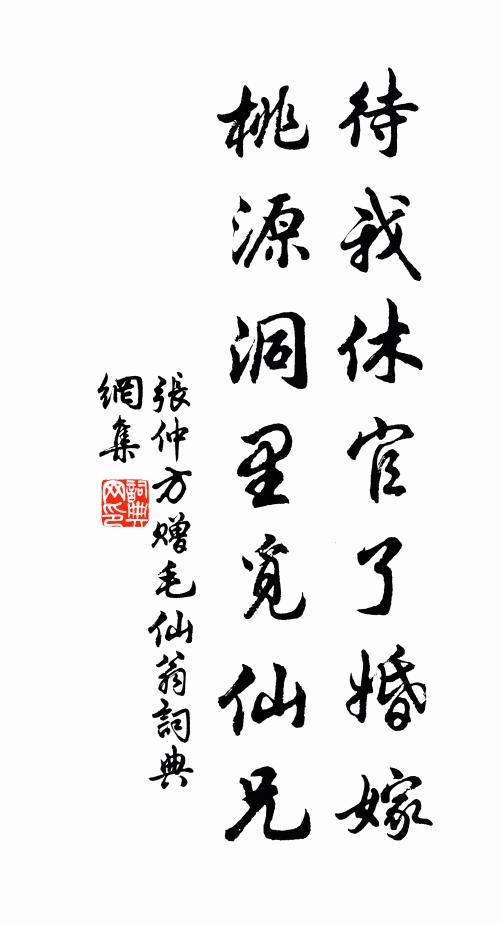 待我休官了婚嫁
桃源洞里覓仙兄
張仲方赠毛仙翁詞典
網集
詞典
网印